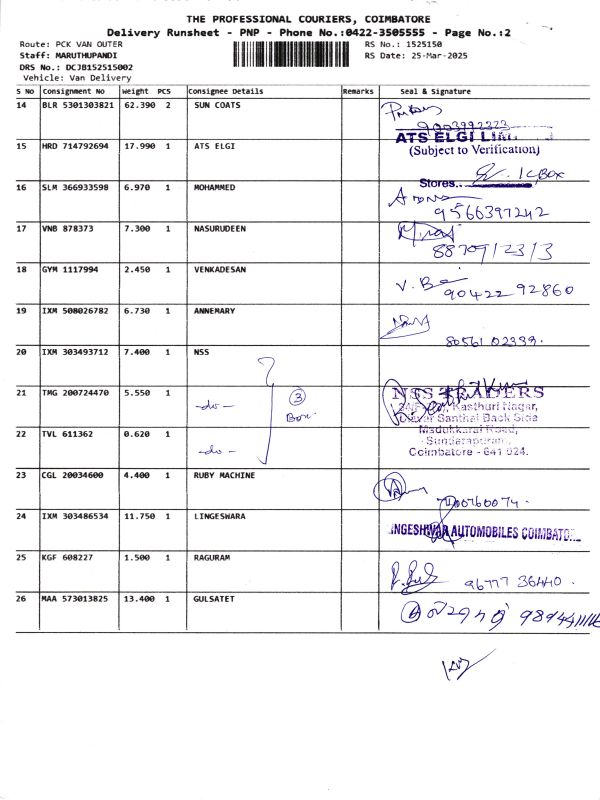 THE PROFESSIONAL COURIERS, COIMBATORE
Delivery Runsheet - PNP - Phone No.:0422-3505555 - Page No.:2
Route: PCK VAN OUTER RS No.: 1525150
Staff: MARUTHUPANDI RS Date: 25-Mar-2025
DRS No.: DCJB152515002
Vehicle: Van Delivery
S No Consignment No Weight PCS Consignee Details Remarks Seal & Signature
14 BLR 5301303821 62.390 2 SUN COATS
9003992223
15 HRD 714792694 17.990 1 ATS ELGI ATS ELGI
(Subject to Verification)
Stores
16 SLM 366933598 6.970 1 MOHAMMED
9566397242
17 VNB 878373 7.300 1 NASURUDEEN
18 GYM 1117994 2.450 1 VENKADESAN
90422 92860
19 IXM 508026782 6.730 1 ANNEMARY
80561 02339.
20 IXM 303493712 7.400 1 NSS
21 TMG 200724470 5.550 1 -do- 3 Box NSS TRADERS
Kasthuri Nagar,
Santhai Back Side
22 TVL 611362 0.620 1 -do- Madukkarai Road,
Sundarapuram,
Coimbatore - 641 024.
23 CGL 20034600 4.400 1 RUBY MACHINE
24 IXM 303486534 11.750 1 LINGESWARA
INGESHWAR AUTOMOBILES COIMBATO
25 KGF 608227 1.500 1 RAGURAM
96777 36440.
26 MAA 573013825 13.400 1 GULSATET